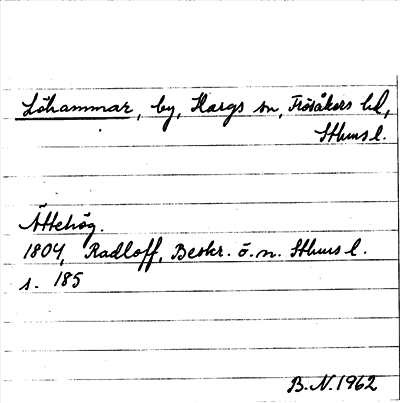 Löhammar, by, Hargs sn, Frösåkers hd,
Sthms l.
Ättehög.
1804, Radloff, Beskr. ö. n. Sthms l.
s. 185
B.N. 1962